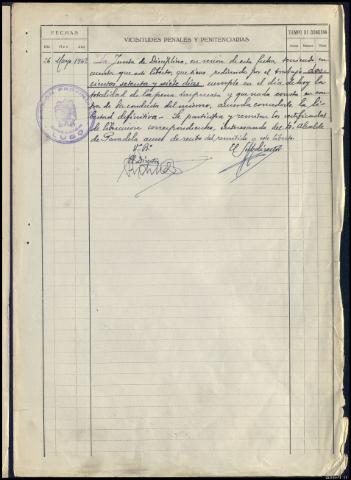 FECHAS
VICISITUDES PENALES Y PENITENCIARIAS
TIEMPO DE CONDENA
Día Mes Año
Años Meses Días
26 Mayo 1942 La Junta de Disciplina, en sesión de esta fecha, teniendo en
cuenta que este liberto, que tiene redimido por el trabajo dos-
cientos setenta y siete días, cumple en el día de hoy la
totalidad de la pena impuesta y que nada consta en con-
tra de la conducta del mismo, acuerda concederle la li-
bertad definitiva.- Se participa y remiten los certificados
de liberación correspondientes, interesando del Sr. Alcalde
de Paradela acuse de recibo del remitido a este liberto.
Vº Bº
El Director
El Subdirector
LUGO